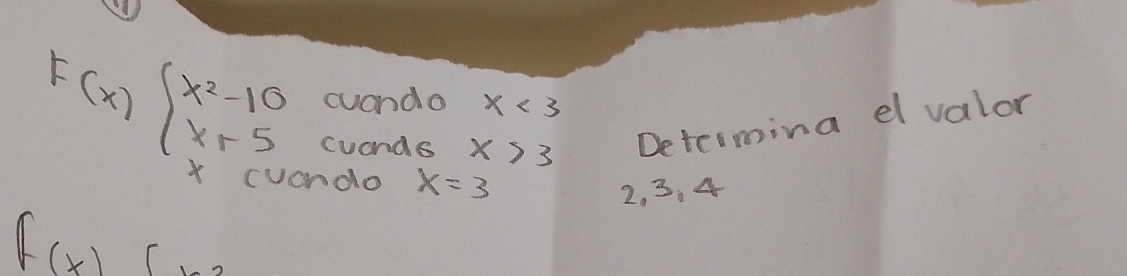 11
F(x) { x²-10 cuando x < 3
x+5 cuando x > 3
x cuando x = 3
Determina el valor
2,3,4
f(x) {